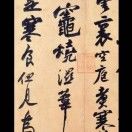 雲裏空庖煮寒
竈燒濕葦
寒食但見烏